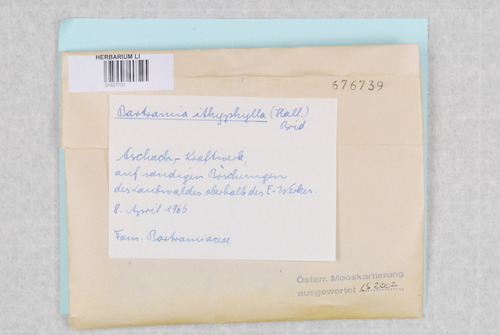 HERBARIUM LI
676739
Bartramia ithyphylla (Hall.)
Brid
Aschach - Kraftwerk,
auf sandigen Böschungen
des Laubwaldes oberhalb des E-Werkes.
8. April 1966
Fam. Bartramiaceae
Österr. Mooskartierung
ausgewertet 2002